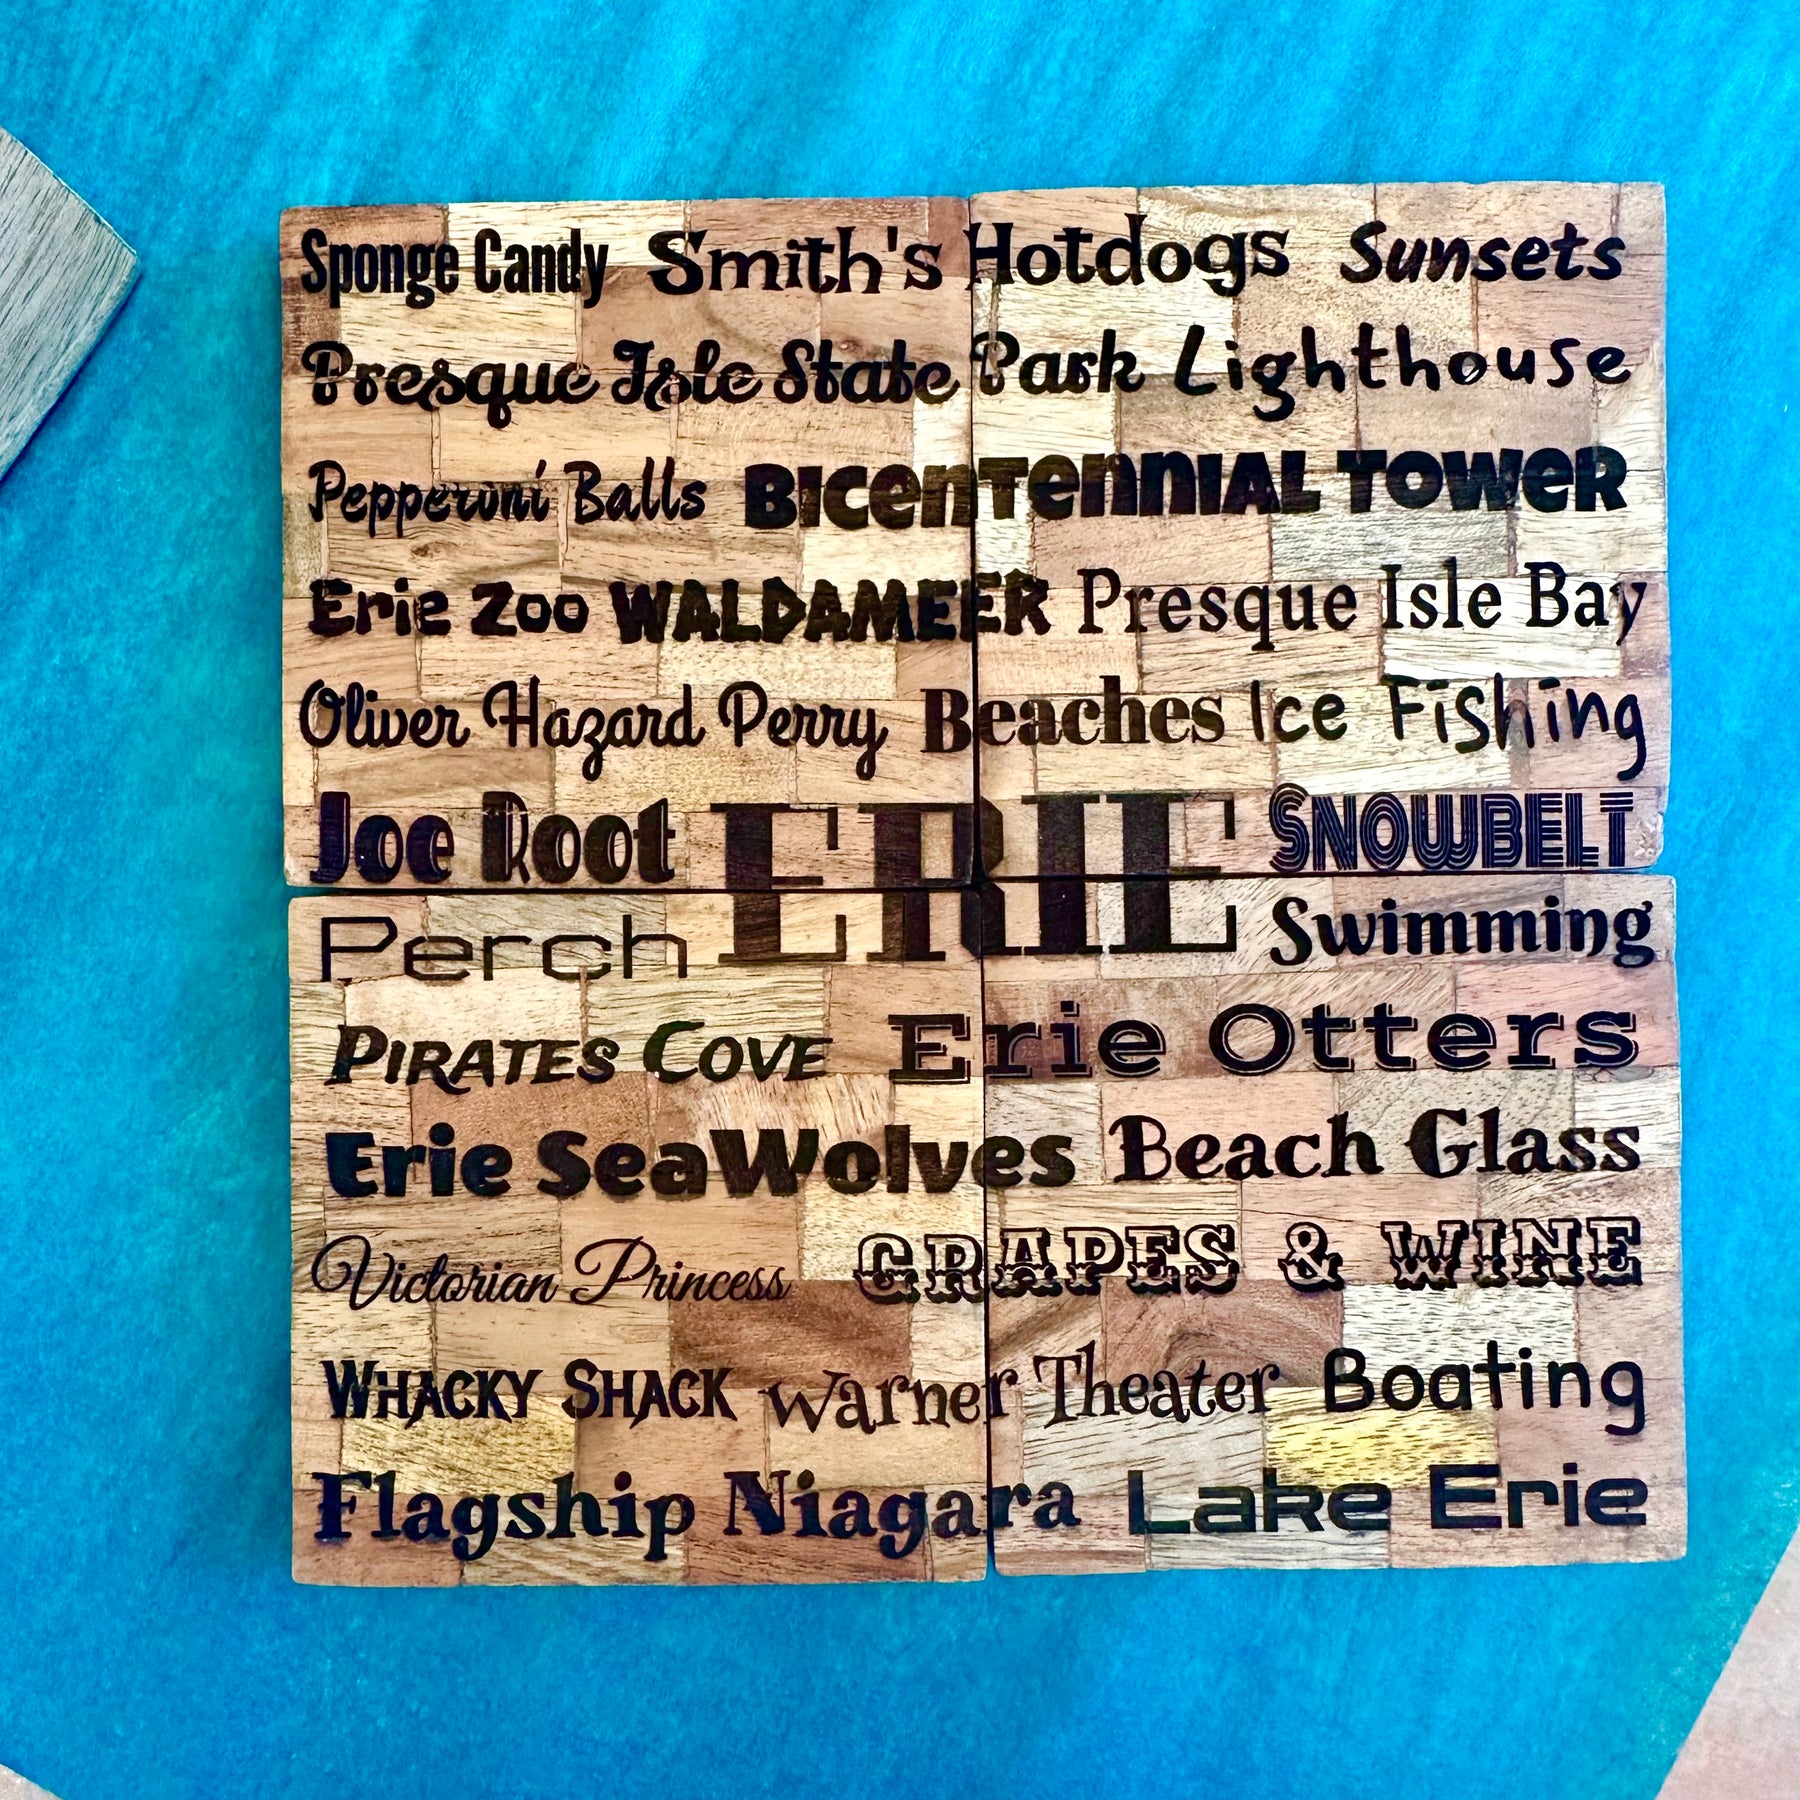 Sponge Candy Smith's Hotdogs Sunsets
Presque Isle State Park Lighthouse
Pepperoni Balls BICENTENNIAL TOWER
Erie Zoo WALDAMEER Presque Isle Bay
Oliver Hazard Perry Beaches Ice Fishing
Joe Root ERIE SNOWBELT
Perch Swimming
PIRATES COVE Erie Otters
Erie SeaWolves Beach Glass
Victorian Princess GRAPES & WINE
WHACKY SHACK Warner Theater Boating
Flagship Niagara Lake Erie